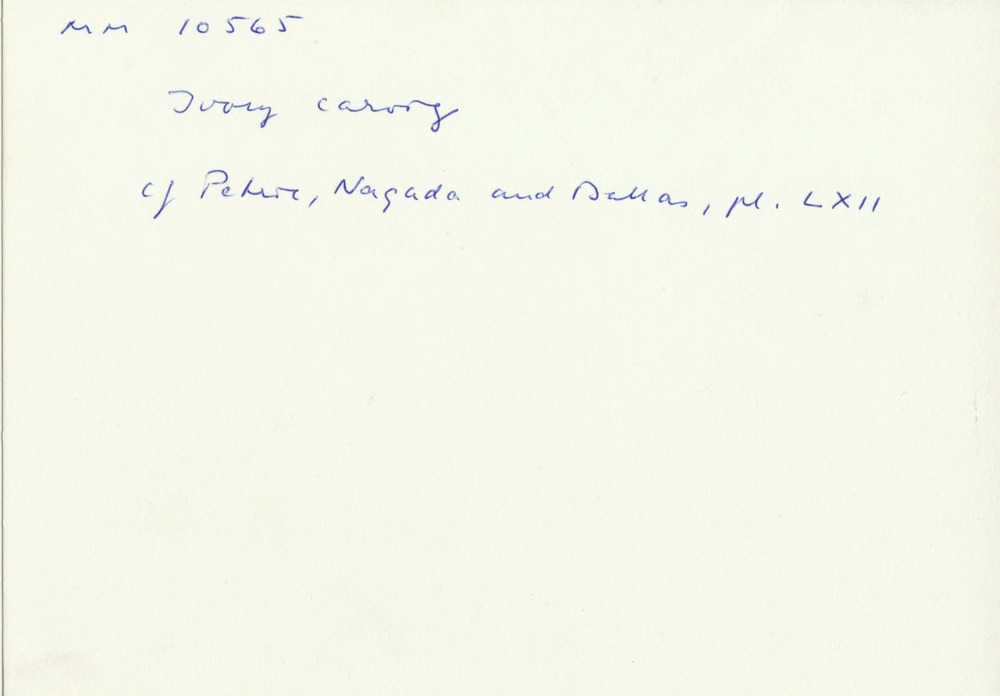 MM 10565
Ivory carving
cf Petrie, Nagada and Ballas, pl. LXII